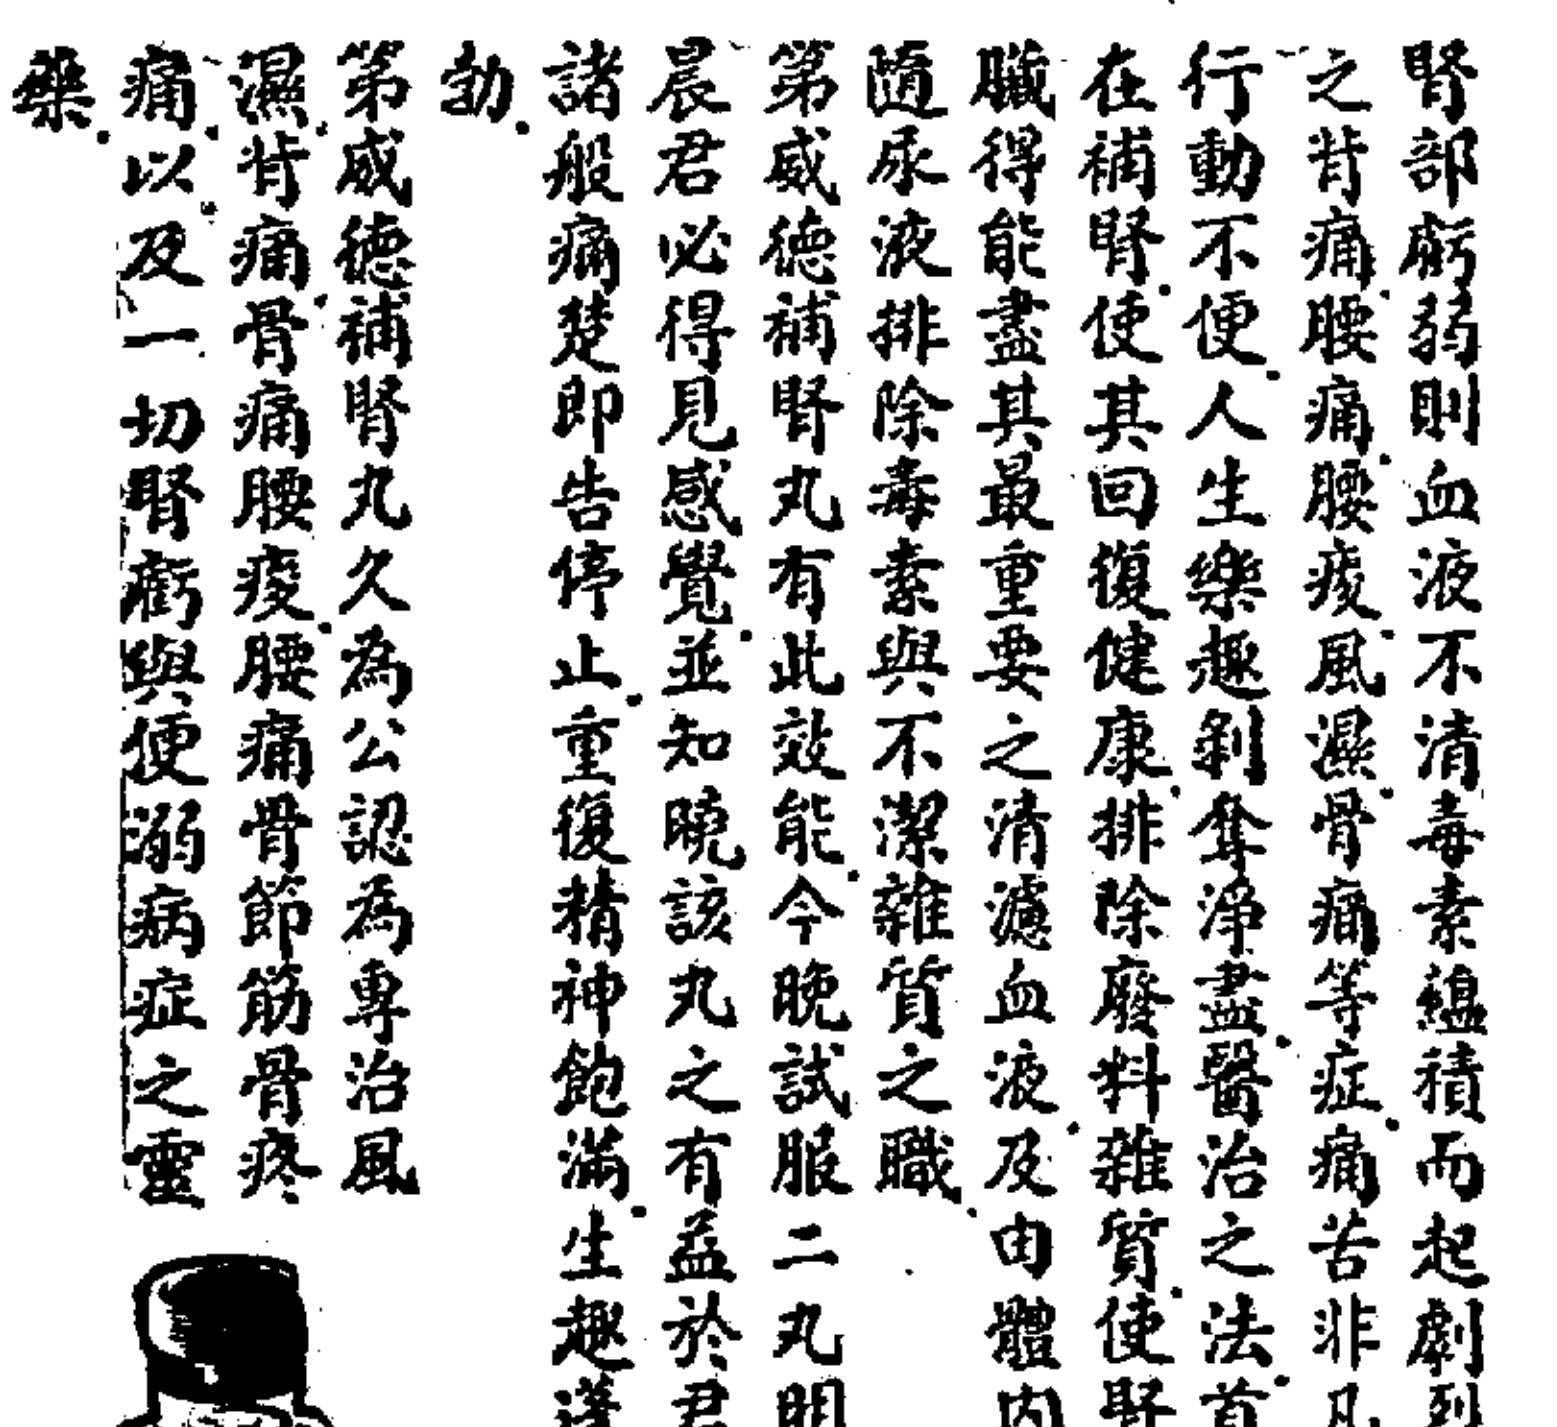 腎部虧弱則血液不清毒素蘊積而起劇烈
之背痛.腰痛.腰痠.風濕.骨痛等症.痛苦非凡
行動不便.人生樂趣剝奪淨盡.醫治之法.首
在補腎.使其回復健康.排除廢料雜質.使腎
臟得能盡其最重要之清濾血液.及由體內
隨尿液排除毒素與不潔雜質之職.
第威德補腎丸有此效能.今晚試服二丸明
晨君必得見感覺.並知曉該丸之有益於君
諸般痛楚即告停止.重復精神飽滿.生趣蓬
勃.
第威德補腎丸久為公認為專治風
濕.背痛.骨痛腰痠.腰痛骨節筋骨疼
痛.以.及一切腎虧與便溺病症之靈
藥.